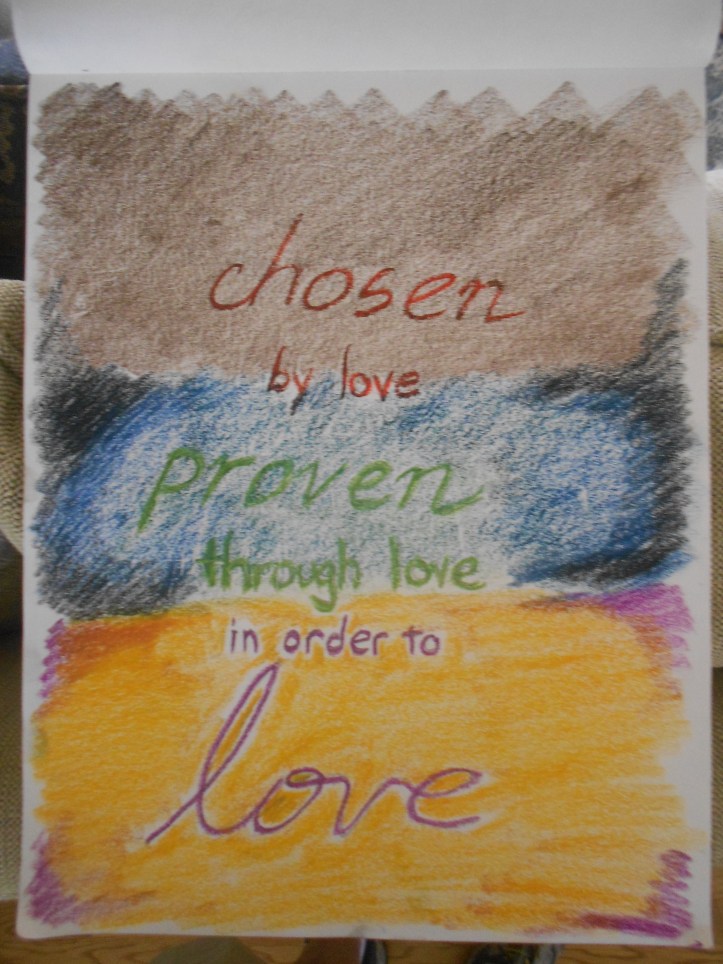 chosen
by love
proven
through love
in order to
love